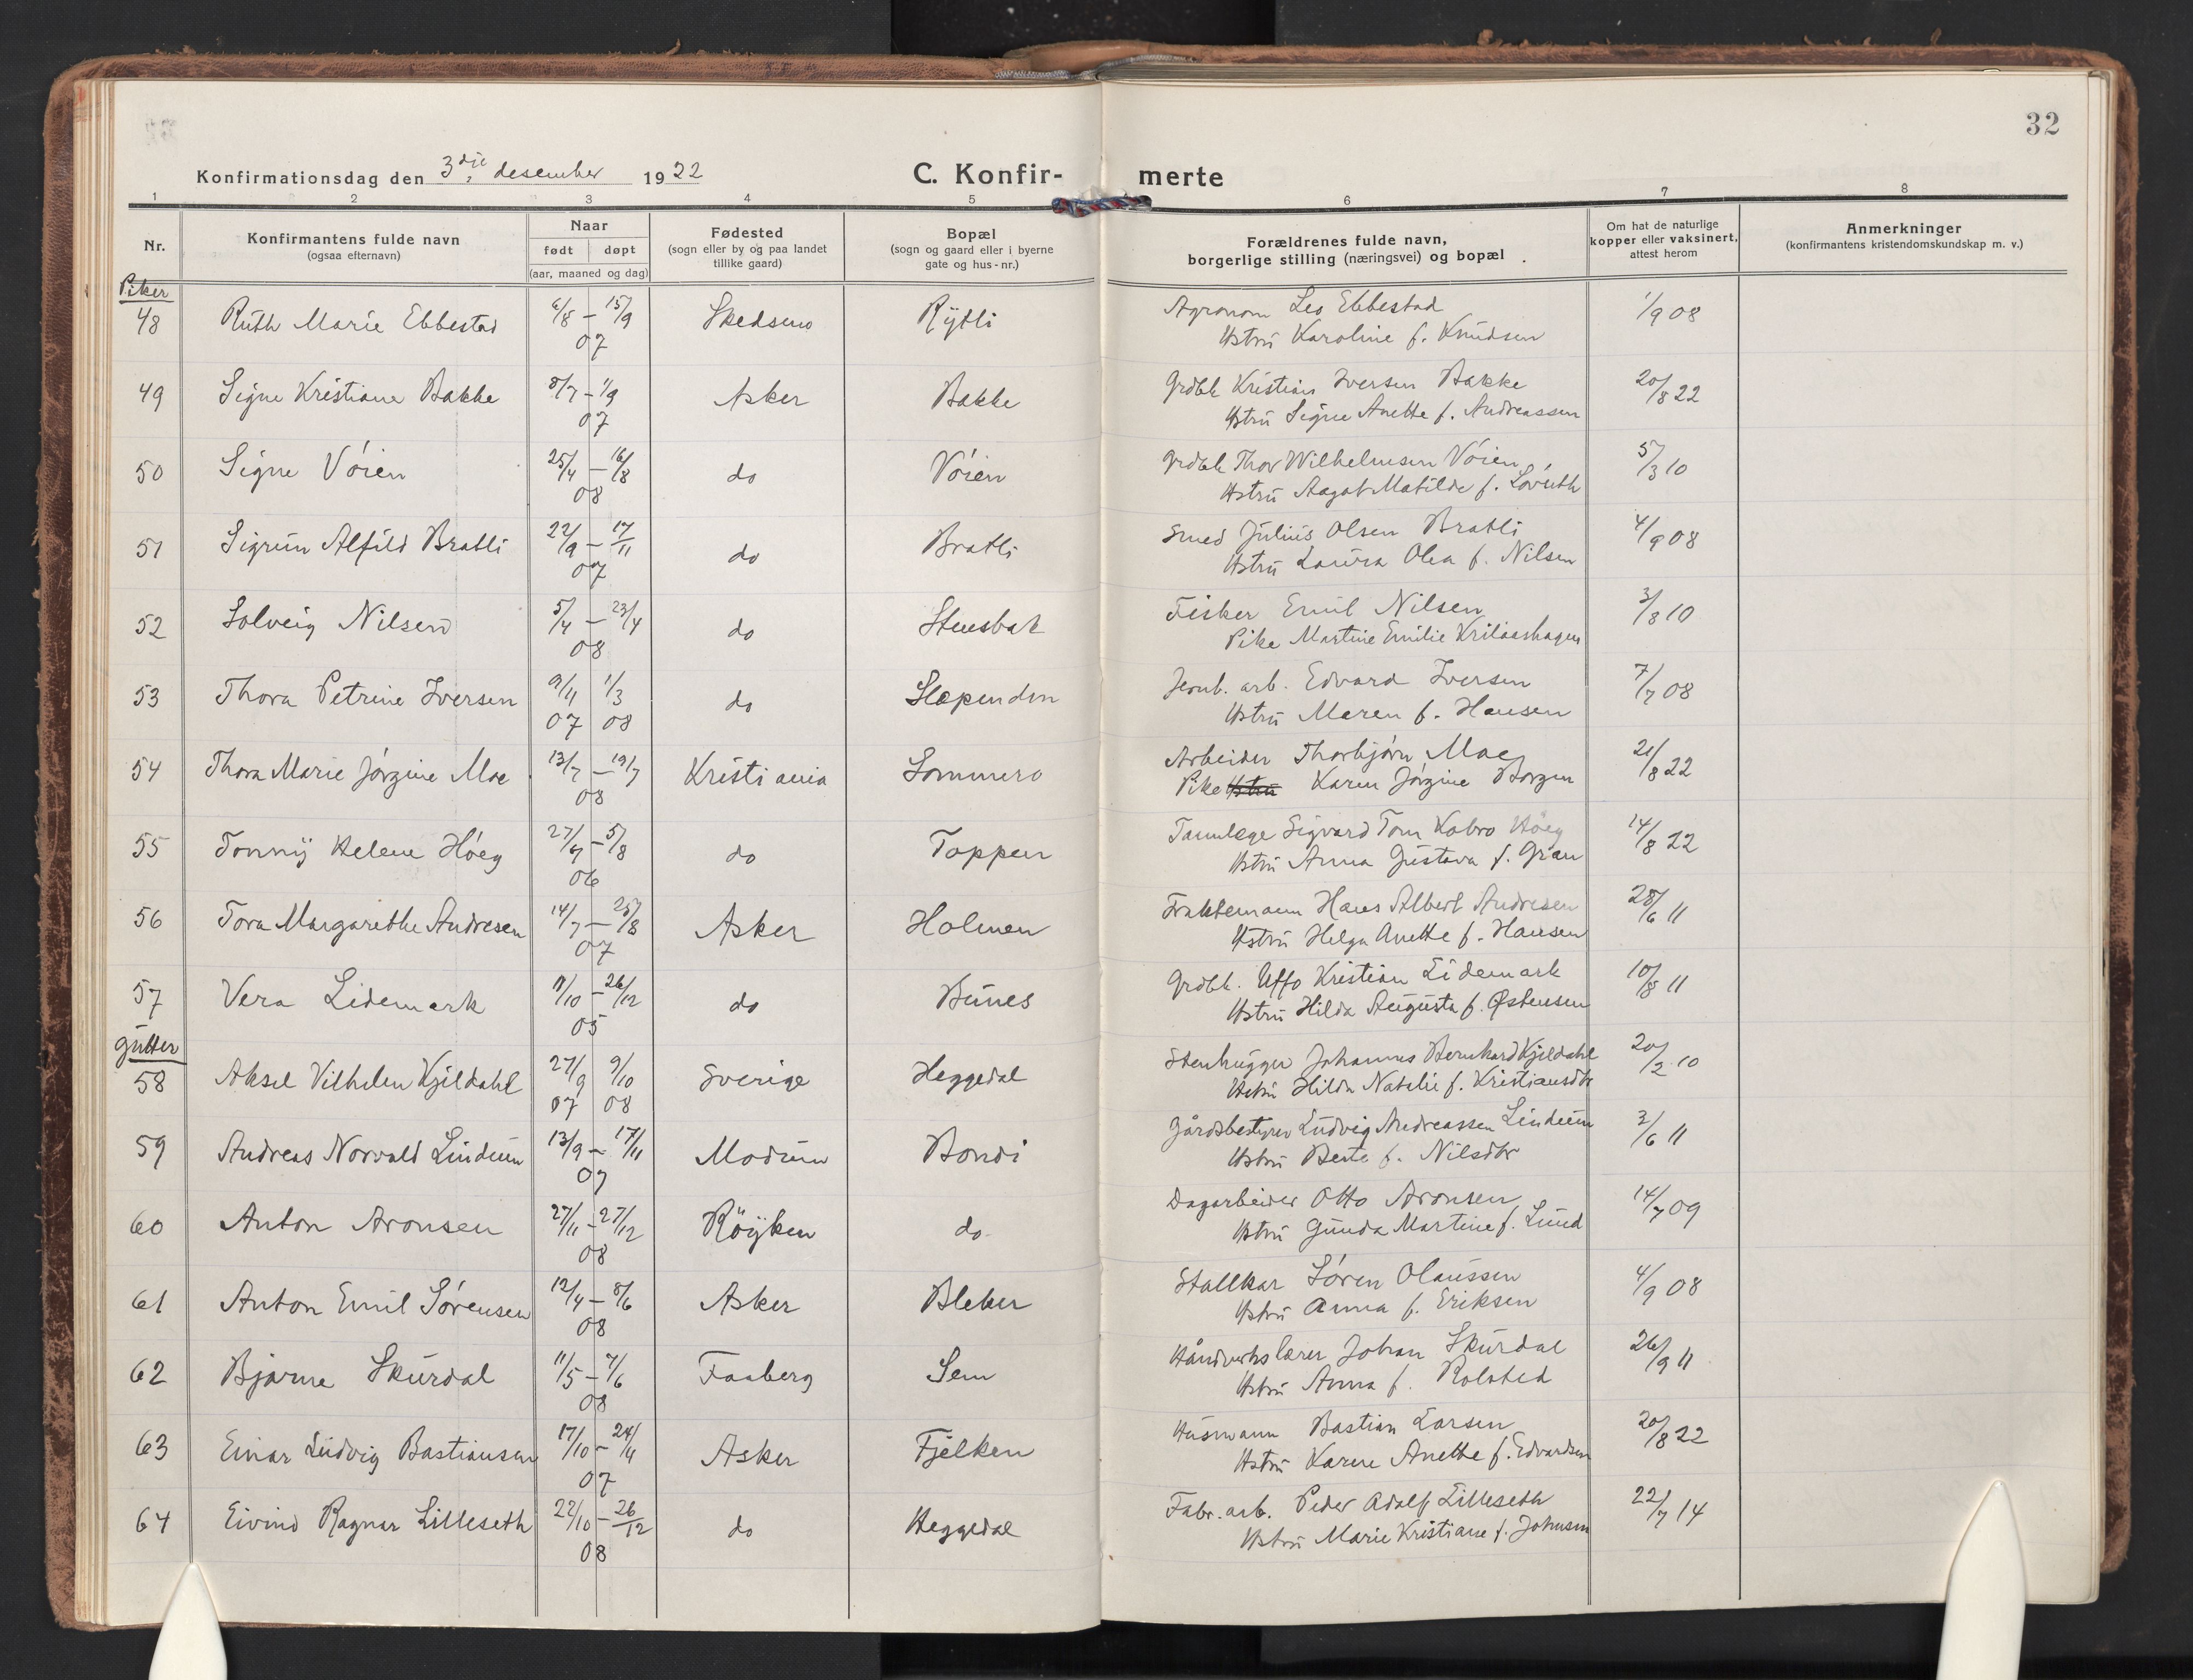 32
Konfirmationsdag den 3dje desember 1922
C. Konfir- merte
1 2 3 4 5 6 7 8
Nr.
Konfirmantens fulde navn
(ogsaa efternavn)
Naar
født døpt
(aar, maaned og dag)
Fødested
(sogn eller by og paa landet
tillike gaard)
Bopæl
(sogn og gaard eller i byerne
gate og hus-nr.)
Forældrenes fulde navn,
borgerlige stilling (næringsvei) og bopæl
Om hat de naturlige
kopper eller vaksinert,
attest herom
Anmerkninger
(konfirmantens kristendomskundskap m. v.)
Piker
48 Ruth Marie Ebbestad 6/8 – 15/9 07 Skedsmo Agronom Leo Ebbestad 1/9 08
Hstru Karoline f. Knudsen
49 Signe Kristiane Bakke 8/7 – 1/9 07 Asker Bakke Grdbk Kristian Iversen Bakke 20/8 22
Hstru Signe Anette f. Andreassen
50 Signe Vøien 25/4 – 16/8 08 do Vøien Grdbk Thor Wilhelmsen Vøien 5/3 10
Hstru Aagot Matilde f. Løvuth
51 Sigrun Alfild Bratli 22/9 – 17/11 07 do Bratli Smed Julius Olsen Bratli 4/9 08
Hstru Laura Olea f. Nilsen
52 Solveig Nilsen 5/4 – 23/4 08 do Stensbak Fisker Emil Nilsen 3/8 10
Pike Martine Emilie
53 Thora Petrine Iversen 9/11 07 1/3 08 do Slependen Jernb. arb. Edvard Iversen 7/7 08
Hstru Maren f. Hansen
54 Thora Marie Jørgine Moe 13/7 – 19/7 08 Kristiania Sommero Arbeider Thorbjørn Moe 21/8 22
Pike Hstru Karen Jørgine Borgen
55 Tonny Helene Høeg 27/7 – 5/8 06 do Toppen Tannlege Sigvard Tom Kobro Høeg 14/8 22
Hstru Anna Gustava f. Gran
56 Tora Margarethe Andresen 14/7 – 25/8 07 Asker Holmen Fraktemann Hans Albert Andresen 28/6 11
Hstru Helga Anette f. Hansen
57 Vera Lidemark 9/10 – 26/12 05 do Bunes Grdbk. Uffo Kristian Lidemark 10/8 11
Hstru Hilda Augusta f. Østensen
Gutter
58 Aksel Vilhelm Kjeldahl 27/9 07 9/10 08 Sverige Heggedal Stenhugger Johannes Bernhard Kjeldahl 20/2 10
Hstru Hilda Natalie f. Kristiansdtr
59 Andreas Norvald Lindum 13/9 – 17/11 07 Modum Bondi Gårdsbestyrer Ludvig Andreassen Lindum 3/6 11
Hstru Berte f. Nilsdtr
60 Anton Aronsen 27/11 – 27/12 08 Röyken do Dagarbeider Otto Aronsen 14/7 09
Hstru Gunda Martine f. Lund
61 Anton Emil Sørensen 12/4 – 8/6 08 Asker Bleker Stallkar Søren Olaussen 4/9 08
Hstru Anna f. Eriksen
62 Bjarne Skurdal 11/5 – 7/6 08 Faaberg Sem Håndverkslærer Johan Skurdal 26/9 11
Hstru Anna f. Rolsted
63 Einar Ludvig Bastiansen 17/10 – 24/11 07 Asker Fjelken Husmann Bastian Larsen 20/8 22
Hstru Karen Anette f. Edvardsen
64 Eivind Ragnar Lilleseth 22/10 – 26/12 08 do Heggedal Fabr. arb. Peder Adolf Lilleseth 22/7 14
Hstru Marie Kristiane f. Johnsen